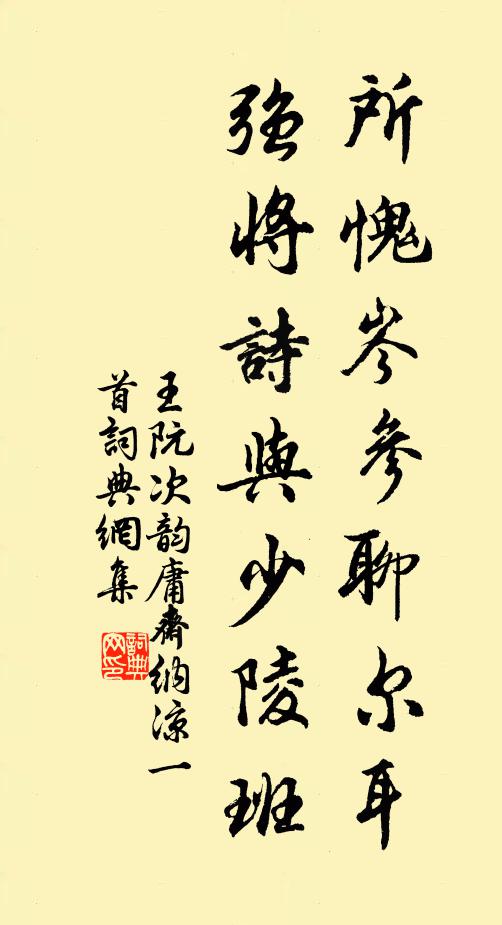 所愧岑參聊尔耳
強將詩與少陵班
王阮次韵庸齋納涼一
首詞典網集
詞典
网印